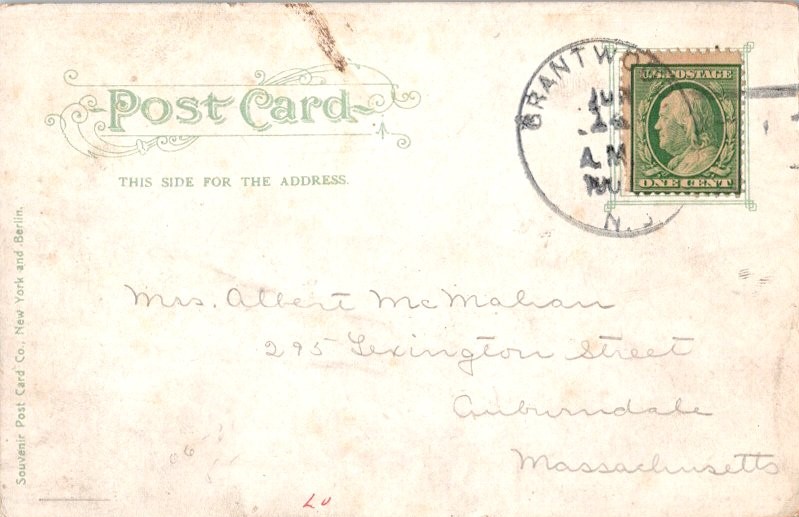 Post Card
THIS SIDE FOR THE ADDRESS.
BRANTWO
A.M.
N.J.
U.S. POSTAGE
ONE CENT
Mrs. Albert McMahan
295 Lexington Street
Auburndale
Massachusetts
Souvenir Post Card Co., New York and Berlin.